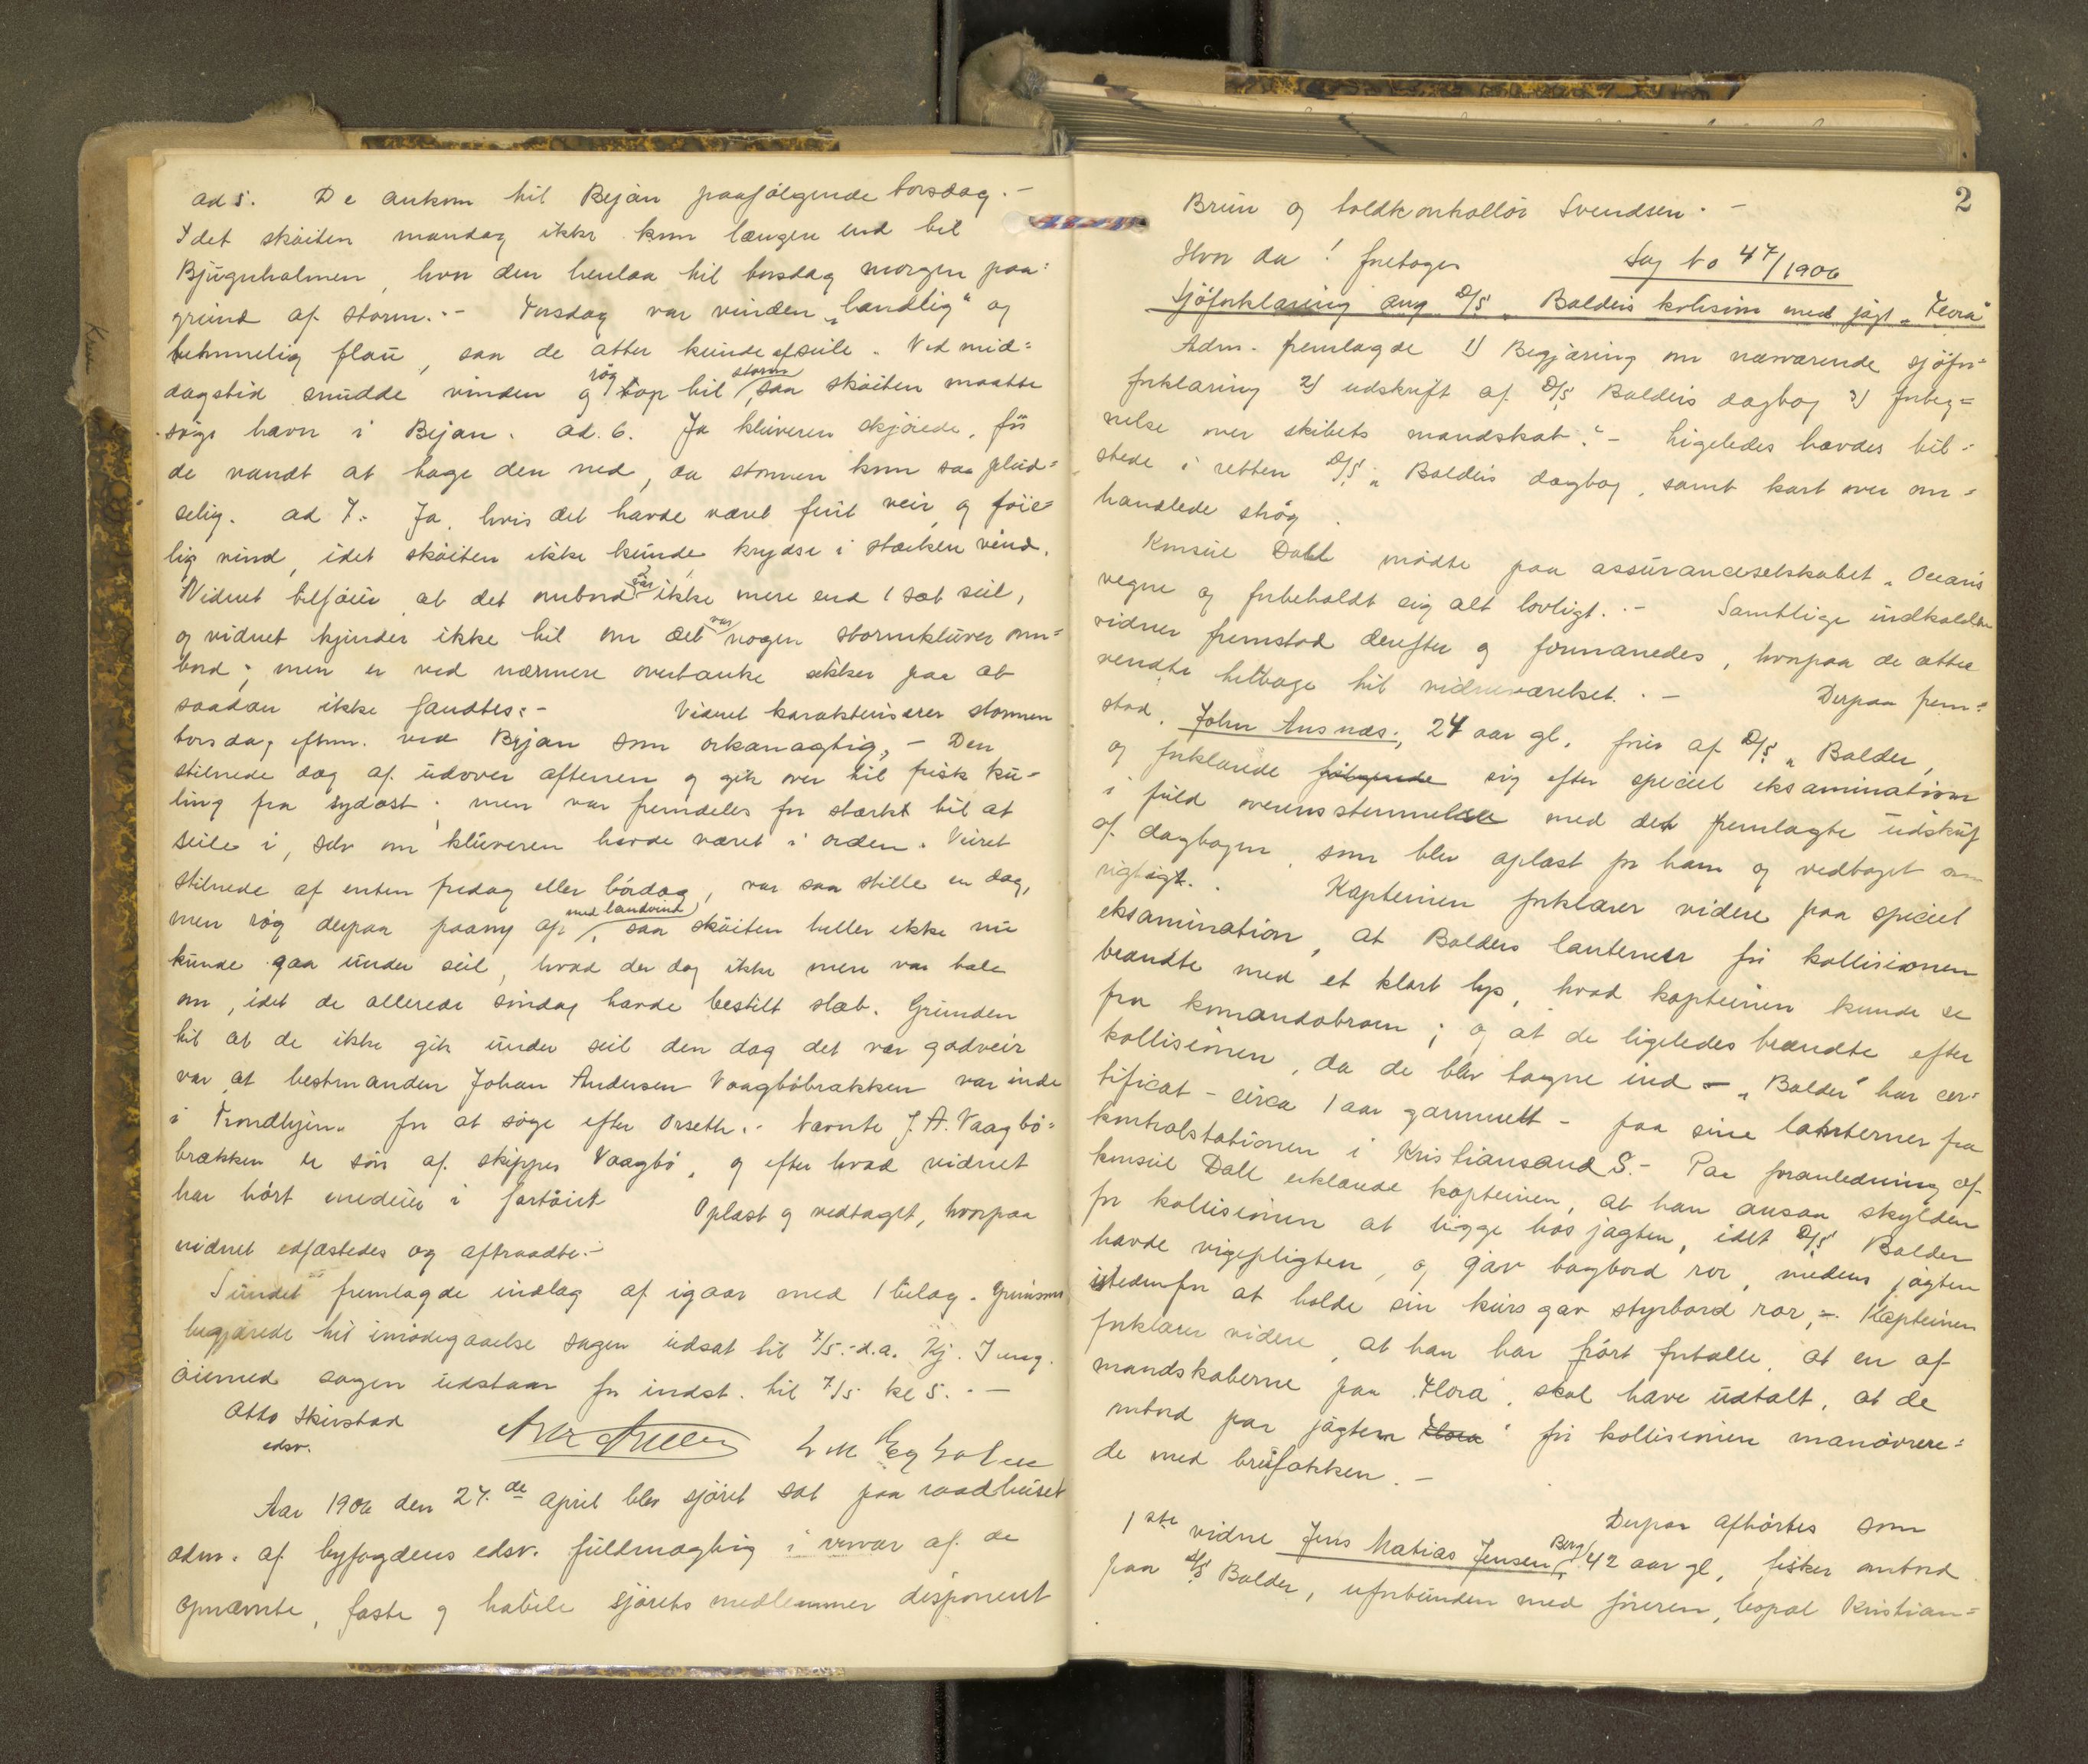 ad 5. De ankom til Bejan paafølgende torsdag.-
Idet skøiten mandag ikke kom længere end til
Bjugnholmen, hvor den henlaa til torsdag morgen paa=
grund af storm.- Torsdag var vinden „landlig" og
temmelig flau, saa de atter kunde afseile. Ved mid=
dagstid snudde vinden og røg op til storm, saa skøiten maatte
søge havn i Bejan. ad. 6. Ja kluveren skjørede, før
de vandt at tage den ned, da stormen kom saa plud=
selig. ad 7. Ja, hvis det havde været fint veir og føie=
lig vind, idet skøiten ikke kunde krydse i stærken vind.
Vidnet tilføier, at det ombord var ikke mere end 1 sæt seil,
og vidnet kjender ikke til om det var nogen stormkluver om=
bord; men er ved nærmere overtanke sikker paa at
saadan ikke fandtes.- Vidnet karakteriserer stormen
torsdag efterm. ved Bejan som orkanagtig.- Den
stilnede dog af udover aftenen og gik over til frisk ku=
ling fra sydost; men var fremdeles for stærkt til at
seile i, selv om kluveren havde været i orden. Veiret
stilnede af enten fredag eller lørdag, var saa stille en dag,
men røg derpaa paany op med landvind, saa skøiten heller ikke nu
kunde gaa under seil, hvad der dog ikke mere var tale
om, idet de allerede søndag havde bestilt slæb. Grunden
til at de ikke gik under seil den dag det var godveir
var at bestmanden Johan Andersen Vaagbøbrækken var inde
i Trondhjem for at søge efter Orseth.- Nævnte J. A. Vaagbø=
brækken er søn af skipper Vaagbø, og efter hvad vidnet
har hørt medeier i fartøiet Oplæst og vedtaget, hvorpaa
vidnet edfæstedes og aftraadte.-
Sundet fremlagde indlæg af igaar med 1 bilag.
begjærede til imødegaaelse sagen udsat til 7/5.- d.a.
øiemed sagen udstaar for indst. til 7/5 kl 5. -
Otto Skirstad
edsv.
Aar 1906 den 27.de april blev sjøret sat paa raadhuset
adm. af byfogdens edsv. fuldmægtig i nærvær af de
opnævnte, faste og habile sjørets medlemmer disponent
2
Brun og toldkontrollør Svendsen. -
Hvor da! foretoges Sag No 47/1906
Sjøforklaring ang D/S „Balders kollision med jagt „Flora"
Adm. fremlagde 1) Begjæring om nærværende sjøfor=
forklaring 2) udskrift af D/S Balders dagbog 3) forteg=
nelse over skibets mandskab.- Ligeledes havdes til=
stede i retten D/S „Balders dagbog, samt kart over om=
handlede strøg.
Konsul Dall mødte paa assuranceselskabet „Oceans
vegne og forbeholdt sig alt lovligt.- Samtlige indkaldte
vidner fremstod derefter og formanedes, hvorpaa de atter
vendte tilbage til vidneværelset.- Derpaa frem=
stod. John Ausnæs, 24 aar gl. fører af D/S „Balder,
og forklarede følgende sig efter speciel eksamination
i fuld overensstemmelse med den fremlagte udskrift
af dagbogen, som blev oplæst for ham og vedtaget som
rigtigt. Kapteinen forklarer videre paa speciel
eksamination, at Balders lanterner før kollisionen
brændte med et klart lys, hvad kapteinen kunde se
fra komandobroen; og at de ligeledes brændte efter
kollisionen, da de blev tagne ind - „Balder" har cer=
tificat - circa 1 aar gammelt - paa sine lanterner fra
kontrolstationen i Kristiansand S.- Paa foranledning af
konsul Dall erklærede kapteinen, at han ansaa skylden
for kollisionen at ligge hos jagten, idet D/S Balder
havde vigepligten, og gav bagbord ror, medens jagten
istedenfor at holde sin kurs gav styrbord ror,- Kapteinen
forklarer videre, at han har hørt fortælle, at en af
mandskaberne paa „Flora", skal have udtalt, at de
ombord paa jagten Flora før kollisionen manøvrere=
de med bredfokken.-
Derpaa afhørtes som
1ste vidne Jens Matias Jensen Berg, 42 aar gl, fisker ombord
paa D/S Balder, uforbunden med føreren, bopæl Kristian=